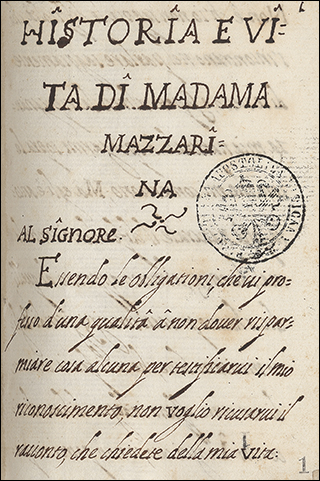 HÎSTORÎA E VÎ=
TA DÎ MADAMA
MAZZARÎ=
NA
AL SÎGNORE.
Essendo le obligationi, che vi pro=
fesso d'una qualità à non dover rispar=
miare cosa alcuna per testificarvi il mio
riconoscimento, non voglio ricusarvi il
racconto, che chiedete della mia Vita:
1